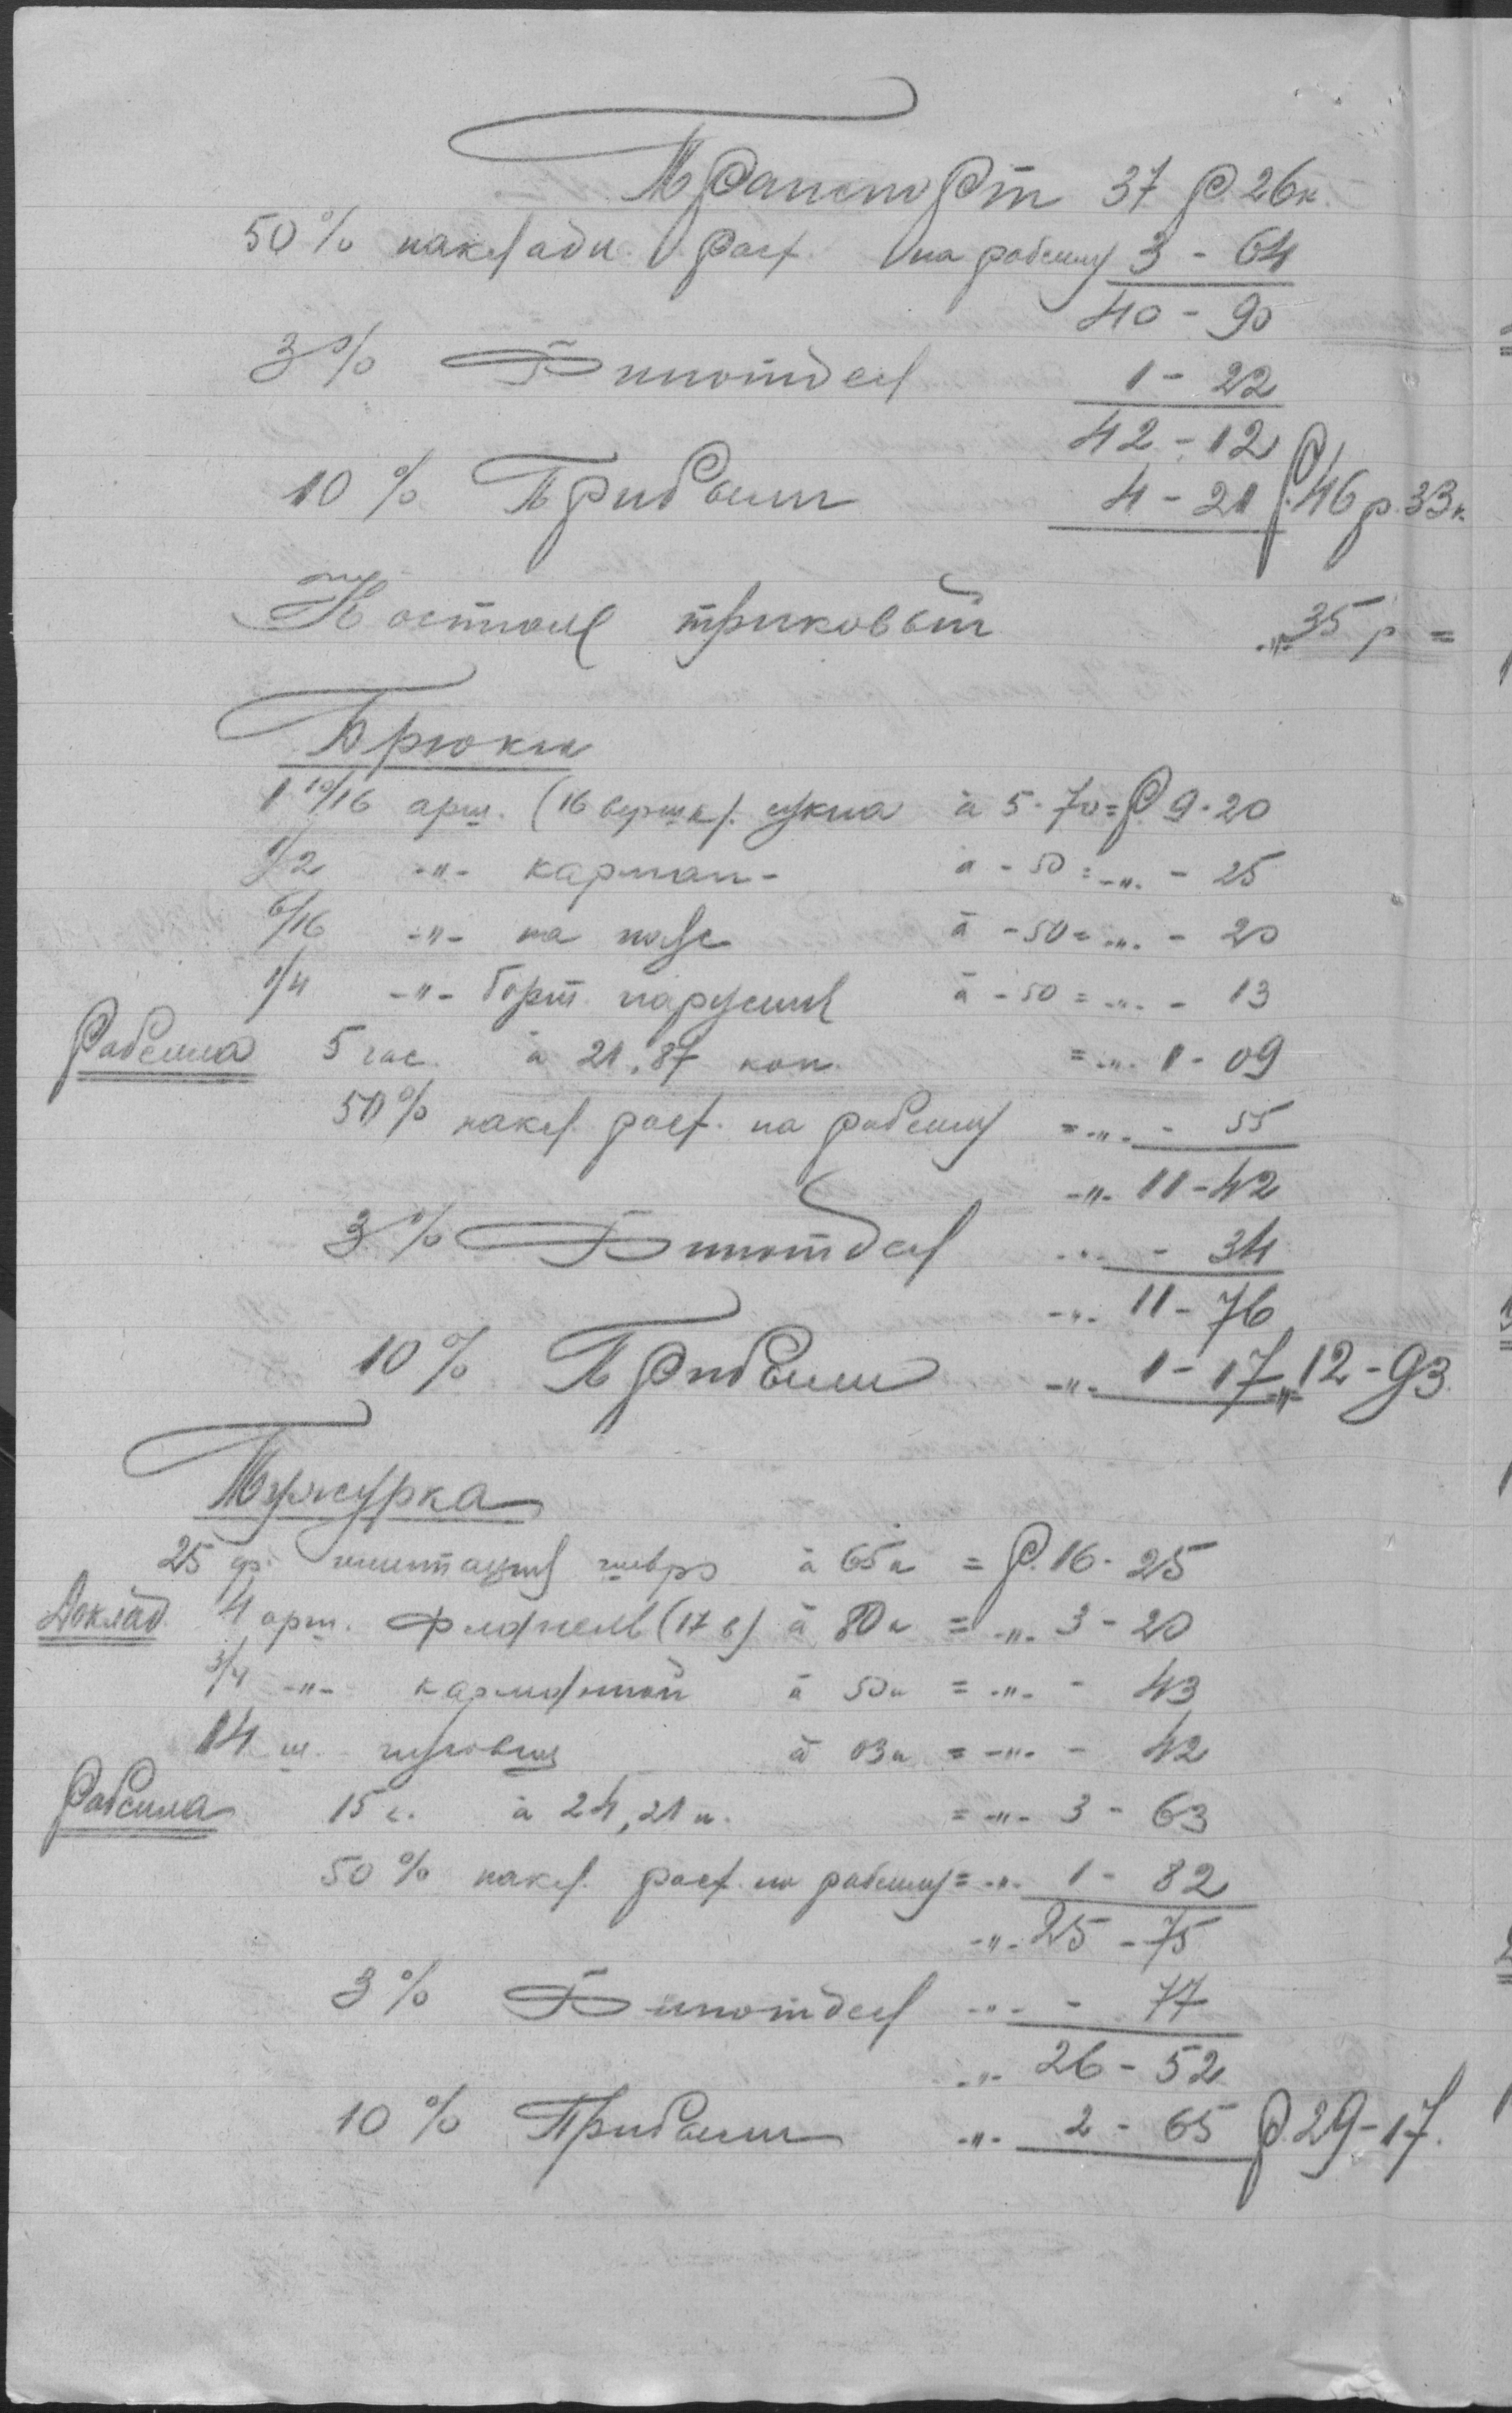 Транспорт 37 р. 26 к.
50 % накладн. расх. на рабсилу 3 - 64
40 - 90
3 % Финотдел 1 - 22
42 - 12
10 % Прибыли 4 - 21 Р. 46 р. 33 к.
Костюм триковый -"- 35 р =
Брюки
1 10/16 арш. (16 вершк). сукна à 5-70 = Р. 9-20
1/2 -"- карман- à - 50 = -"- - 25
6/16 -"- на à - 50 = -"- - 20
1/4 -"- борт. парусины à - 50 = -"- - 13
Рабсила 5 час. à 21,87 коп. = -"- 1 - 09
50 % накл. расх. на рабсилу = -"- - 55
-"- 11 - 42
3 % Финотдел -"- - 34
-"- 11 - 76
10 % Прибыли -"- 1 - 17 -"- 12 - 93
Тужурка
25 ф. имитация шевро à 65 к = Р. 16 - 25
Доклад 4 арш. фланель (17 в) à 80 к = -"- 3 - 20
3/4 -"- à 50 к = -"- - 43
14 ш. пуговиц à 03 к = -"- - 42
Рабсила 15 ч. à 24,21 к. = -"- 3 - 63
50 % накл. расх. на рабсилу = -"- 1 - 82
-"- 25 - 75
3 % Финотдел -"- - 77
-"- 26 - 52
10 % Прибыли -"- 2 - 65 Р. 29 - 17.